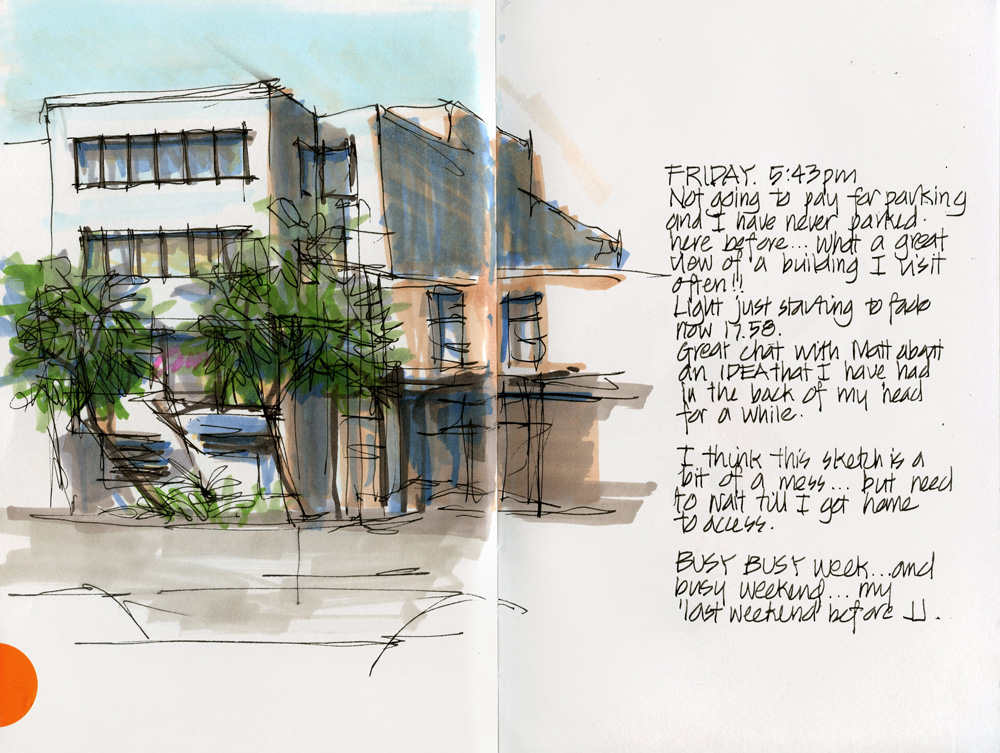 FRIDAY. 5:43pm
Not going to pay for parking
and I have never parked
here before... what a great
view of a building I visit
often!!
Light just starting to fade
now 17.58.
Great chat with Matt about
an IDEA that I have had
in the back of my head
for a while.
I think this sketch is a
bit of a mess... but need
to wait till I get home
to access.
BUSY BUSY week...and
busy weekend... my
'last weekend' before